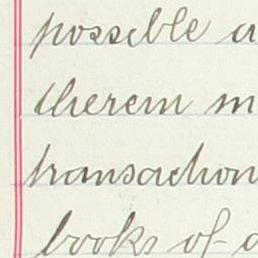 possible a
therein m
transaction
books of a